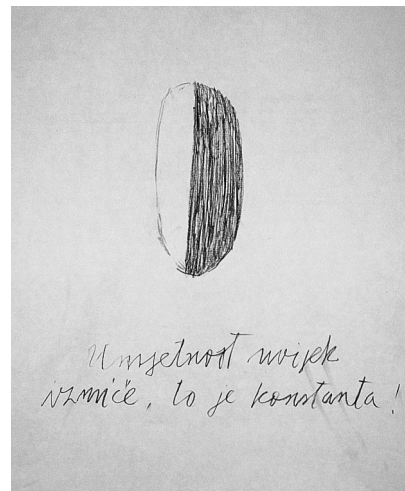 Umjetnost uvijek
izmiče, to je konstanta!